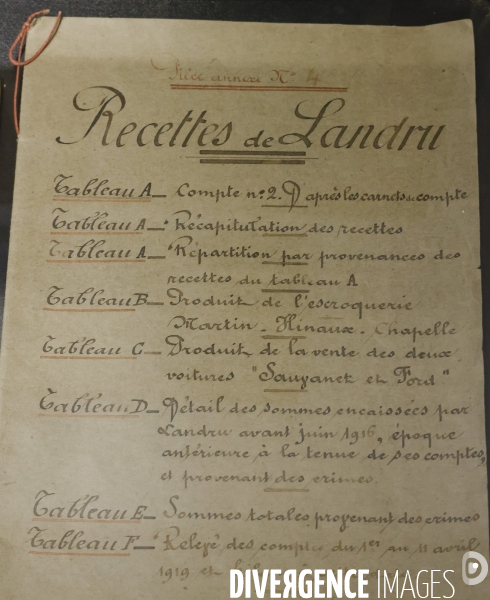 Pièce annexe No 4
Recettes de Landru
Tableau A_ Compte no. 2. D'après les carnets de compte
Tableau A_ Récapitulation des recettes
Tableau A_ Répartition par provenances des
recettes du tableau A
Tableau B_ Produit de l'escroquerie
Martin _ Hinaux. Chapelle
Tableau C_ Produit de la vente des deux
voitures "Sauzanet et Ford"
Tableau D_ Détail des sommes encaissées par
Landru avant juin 1916, époque
antérieure à la tenue de ses comptes,
et provenant des crimes.
Tableau E_ Sommes totales provenant des crimes
Tableau F_ Relevé des comptes du 1er au 11 avril
1919 et
DIVERGENCE IMAGES